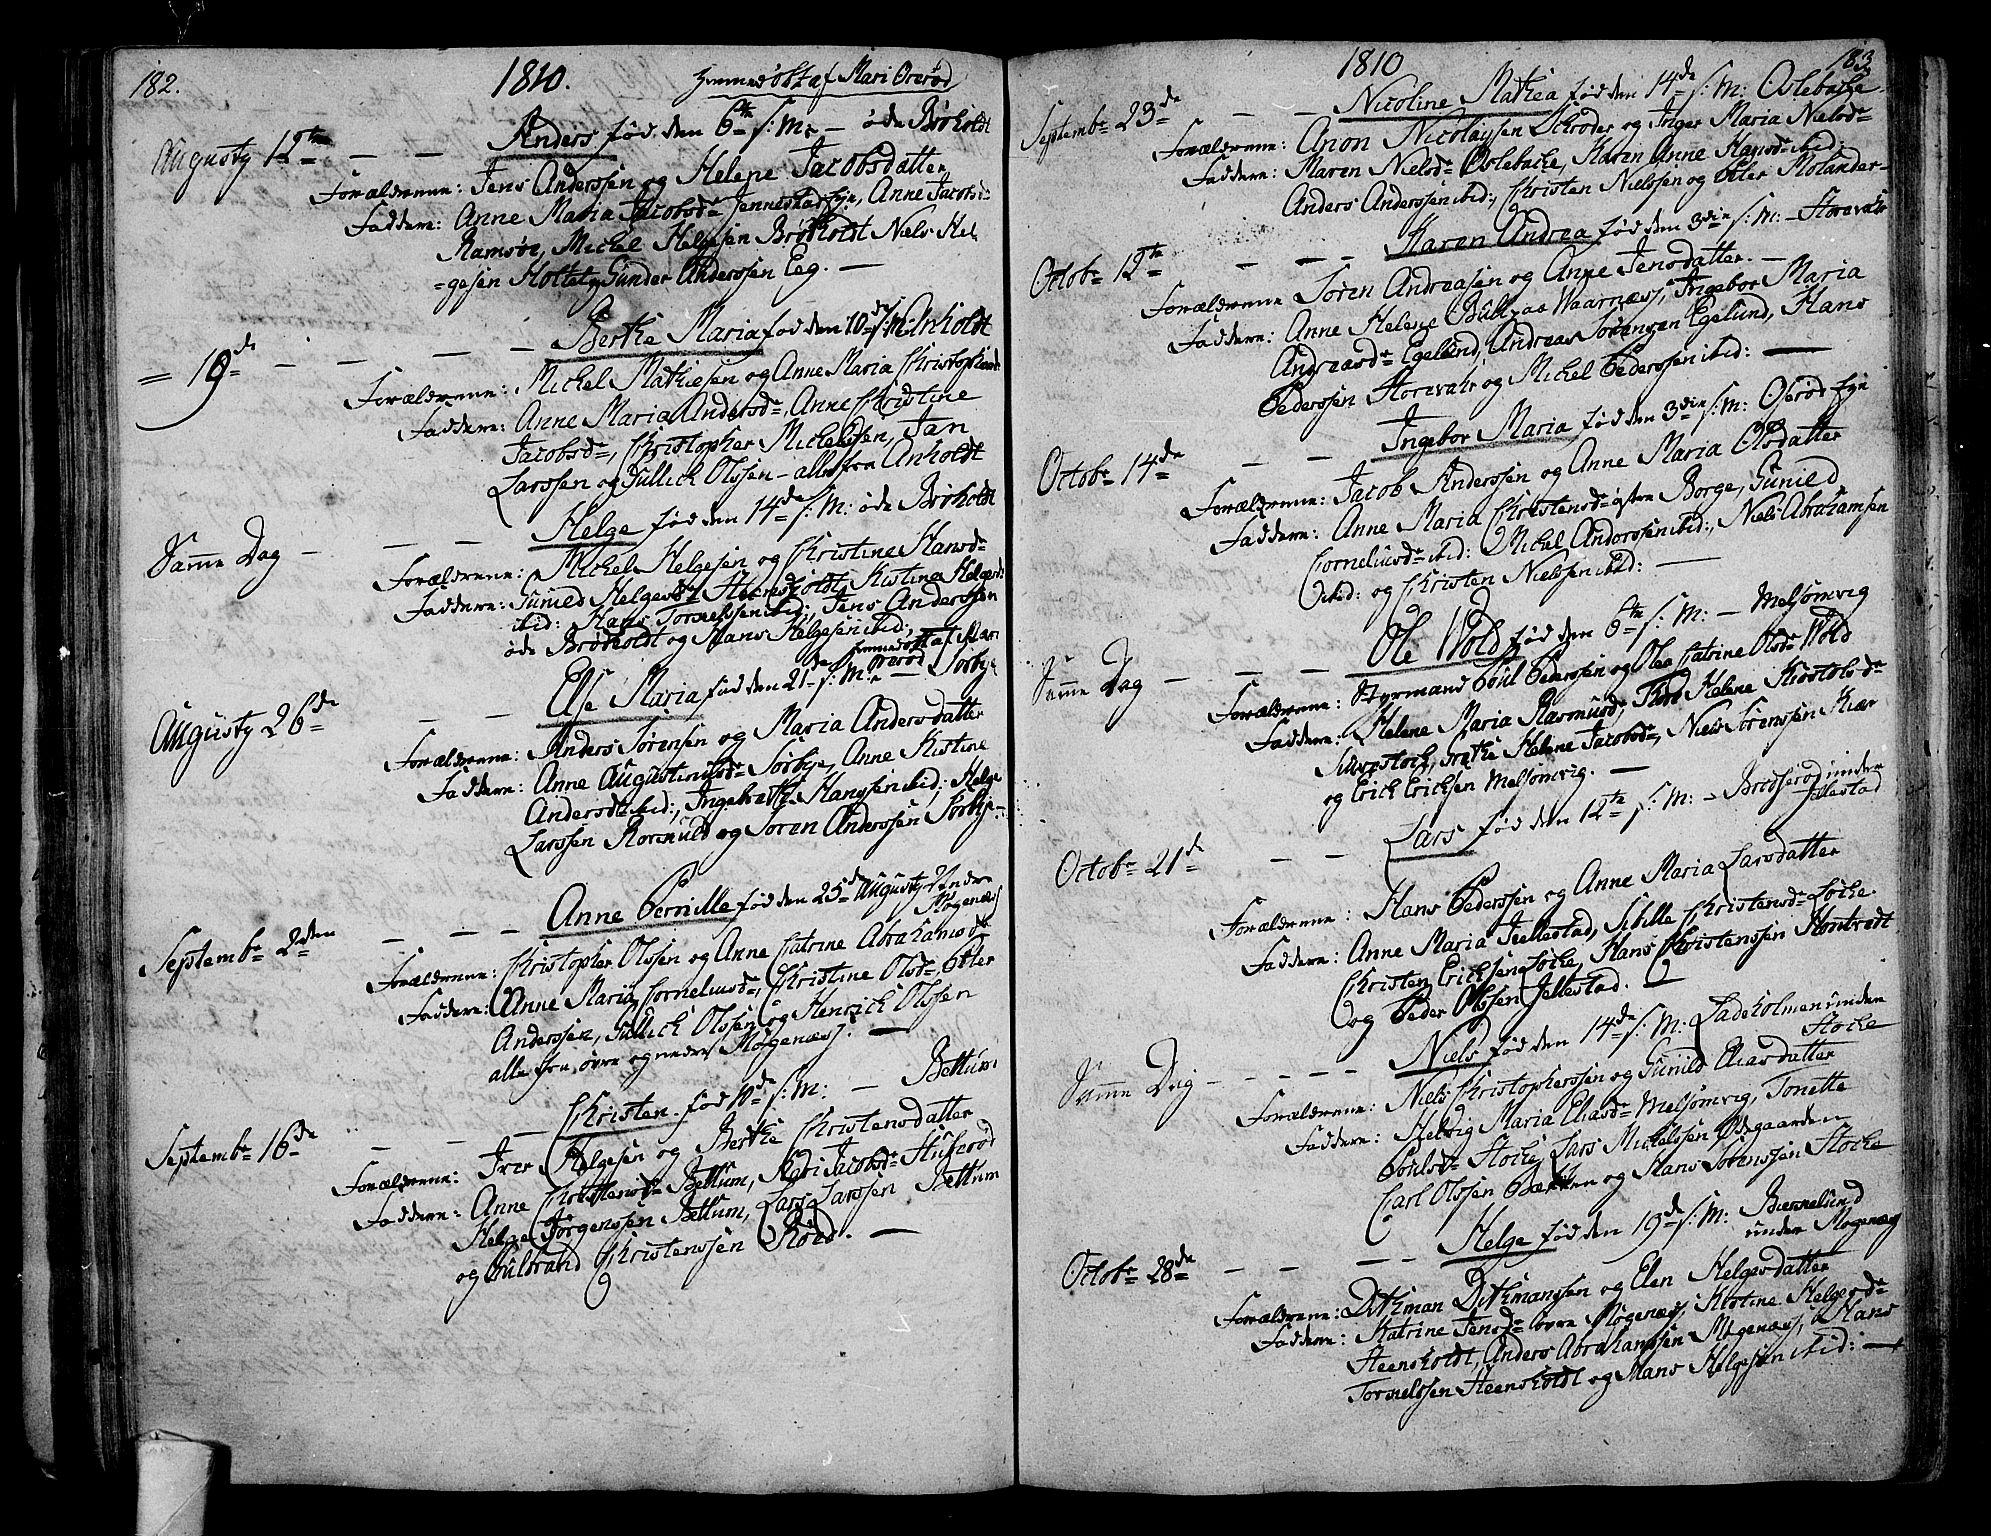 182.
1810.
hiemmedöbt af Mari Orerød
Augusty 12te — — Anders fød den 6te s: M: — öde Brøholdt
Forældrene: Jens Anderssen og Helene Jacobsdatter
Faddere: Anne Maria Jacobsd: Jenneskar, Anne Jacobsd:
Ramsöe, Michel Helgesen Brøholdt Niels Hel
gesen Holtet, Gunder Anderssen Eeg. —
= 19de — — — Berthe Maria fød den 10de s: M: Anholdt
Forældrene: Michel Mathiesen og Anne Maria Christophersd:
Faddere: Anne Maria Andersd:, Anne Christine
Jacobsd:, Christopher Michelssen, Jan
Larssen og Gullich Olssen — alle fra Anholdt
Samme Dag — — — Helge fød den 14de s: M: öde Brøholdt
Forældrene: Michel Helgesen og Christine Hansd:
Faddere: Gunild Helgesd: Heensholdt, Kistina Helgesd:
ibid: Hans Tormelssen ibid:, Jens Anderssen
öde Brøholdt og Hans Helgesen ibid:
hiemmedöbt af Mari
Orerød
Augusty 26de — — Else Maria fød den 21de s: M: — Sørbye
Forældrene: Anders Sørensen og Maria Andersdatter
Faddere: Anne Augustinusd: Sørbye, Anne Kistine
Andersd: ibid:, Ingebreth Hanssen ibid:, Helge
Larssen Roremuld og Søren Anderssen Sørbye. —
Septemb: 2den — — — Anne Pernille fød den 25de Augusty Nedre
Mogenæs
Forældrene: Christopher Olssen og Anne Catrine Abrahamsd:
Faddere: Anne Maria Cornelius:, Christine Olsd: Peter
Anderssen, Gullich Olssen og Henrich Olssen
alle fra övre og nedre Mogenæs. —
Septemb: 16de — — — Christen fød 10de s: M: — Bettum
Forældrene: Iver Helgesen og Berthe Christensdatter
Faddere: Anne Christensd: Bettum, Kari Jacobsd: Huserød
Helge Jörgenssen Bettum, Lars Larssen Bettum
og Gulbrand Christenssen Röed. —
1810
183
Septemb: 23de — — Nicoline Mathea fød den 14de s: M: Oslebache
Forældrene: Anon Nicolaysen Schrøder og Inger Maria Nielsd:
Faddere: Maren Nielsd: Oslebache, Karen Anne Hansd: ibid:
Anders Anderssen ibid:, Christen Nielssen og Peter Molander —
Octob: 12te — — — Karen Andrea fød den 3die s: M: — Storevahr
Forældrene Søren Andreasen og Anne Jensdatter. —
Faddere: Anne Helene Bull paa Vaarnæss, Ingebor Maria
Andreasd: Egelund, Andreas Sørensen Egelund, Hans
Pederssen Storevahr og Michel Pederssen ibid: —
Octob: 14de — — Ingebor Maria fød den 3die s: M: Oserød
Forældrene: Jacob Anderssen og Anne Maria Olsdatter
Faddere: Anne Maria Christensd: östre Borge, Gunild
Corneliusd: ibid: Michel Anderssen ibid:, Niels Abrahamsen
ibid: og Christen Nielssen ibid: —
Samme Dag — — — Ole Wold fød den 6te s: M: — Melsomvig
Forældrene: Styrmand Poul Pederssen og Olea Catrine Olsd: Wold
Faddere: Helene Maria Rasmusd:, Helene Kiostolsd:
Grethe Helene Jacobsd:, Niels Sørenssen Kiær
og Erich Erichsen Melsomvig. —
Octob: 21de — — Lars fød den 12te s: M: — Bredserød under
Jellestad
Forældrene: Hans Pederssen og Anne Maria Larsdatter
Faddere: Anne Maria Jellestad, Sibille Christensd: Løche
Christen Erichsen Løche, Hans Christenssen Hontvedt
og Peder Olssen Jellestad. —
Samme Dag — — — Niels fød den 14de s: M: Ladeholmen under
Stoche
Forældrene: Niels Christopherssen og Gunild Eliasdatter
Faddere: Helvig Maria Eliasd: Melsomvig, Tonette
Poulsd: Stoche, Lars Michelssen Ödegaarden
Carl Olssen Bækken og Hans Sörenssen Stoche
Octob: 28de — — — Helge fød den 19de s: M: Bierkelund
under Mogenæs
Forældrene: Dithman Dithmanssen og Elen Helgesdatter
Faddere: Katrine Jensd: övre Mogenæs, Kistine Helgesd:
Heensholdt, Anders Abrahamssen Mogenæs, Hans
Tormelssen Heensholdt og Hans Helgesen ibid: —